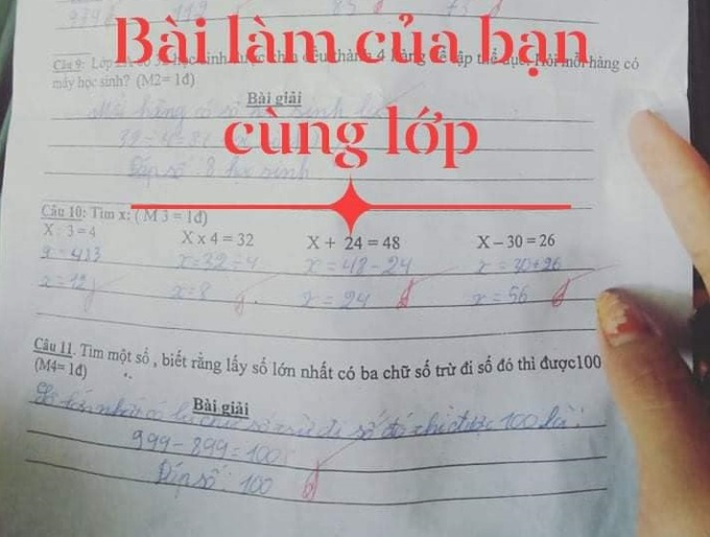 Bài làm của bạn
cùng lớp
Câu 9: Lớp có học sinh được chia đều thành 4 hàng để tập thể dục. Hỏi mỗi hàng có
mấy học sinh? (M2= 1đ)
Bài giải
Mỗi hàng có số học sinh là
32 ÷ 4 = 8
Đáp số: 8 học sinh
Câu 10: Tìm x: ( M 3 = 1đ)
X : 3 = 4 X x 4 = 32 X + 24 = 48 X – 30 = 26
x = 4 x 3 x = 32 ÷ 4 x = 48 - 24 x = 30 + 26
x = 12 x = 8 x = 24 x = 56
Câu 11. Tìm một số , biết rằng lấy số lớn nhất có ba chữ số trừ đi số đó thì được100
(M4= 1đ)
Bài giải
Số lớn nhất có ba chữ số trừ đi số đó thì được 100 là:
999 - 899 = 100
Đáp số: 100